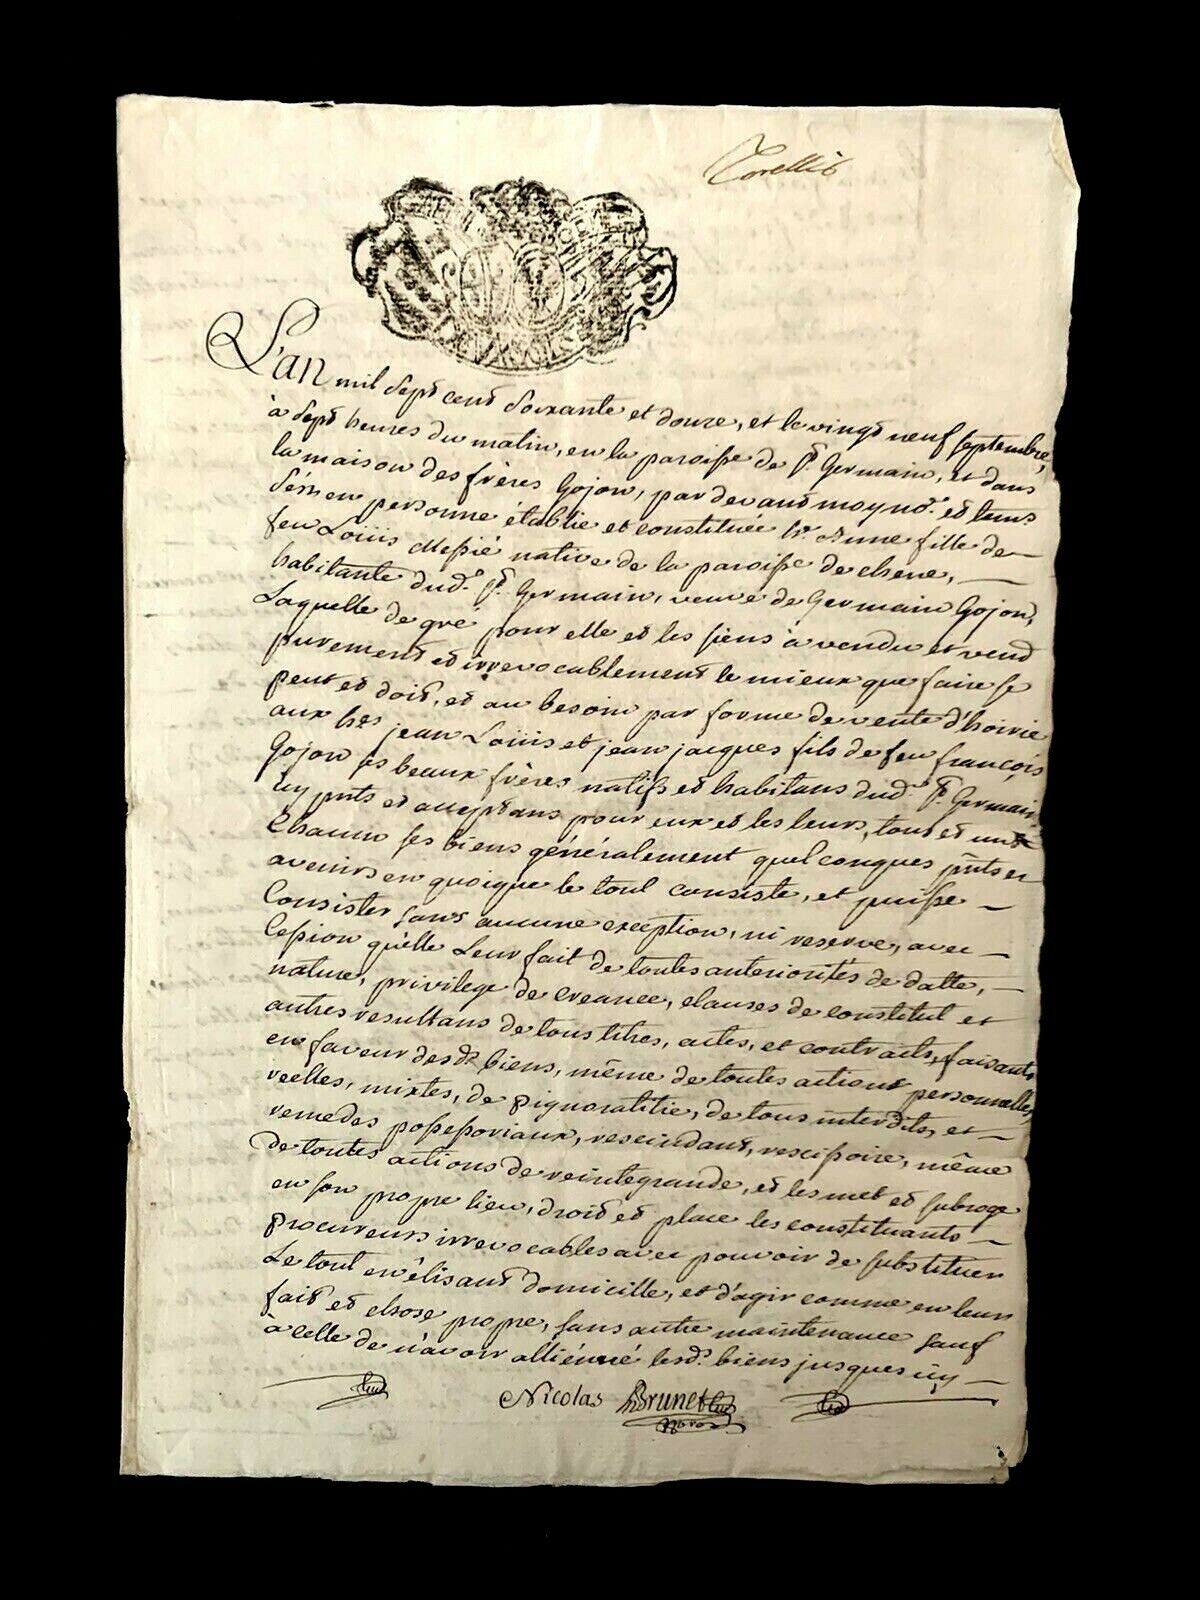 Torelli
L'an mil sept cent soixante et douze, et le vingt neuf septembre,
à sept heures du matin, en la paroisse de St. Germain, et dans
la maison des frères Gojon, par devant moy no.re et tems
en personne établie et constituée h.e fille de
feu Loüis native de la paroisse de chene,
habitante dud.t St. Germain, veuve de Germain Gojon,
Laquelle de gré pour elle et les siens à vendu et vend
purement et irrevocablement le mieux que faire se
peut et doit, et au besoin par forme de vente d'hoirie
aux h.es jean Loüis et jean jacques fils de feu françois
Gojon ses beaux frères natifs et habitans dud.t St. Germain
icy pnts et acceptans pour eux et les leurs, tous et uns
Chacun ses biens généralement quelconques pnts et
avenirs en quoique le tout consiste, et puisse
Consister sans aucune exception, ni reserve, avec
Cession qu'elle Leur fait de toutes anteriorités de datte,
nature, privilege de Creance, clauses de constitut et
autres resultans de tous titres, actes, et contracts, faisants
en faveur desd.s biens, même de toutes actions personnelles,
reelles, mixtes, de pignoratitie, de tous interdits, et
remedes possessoriaux, rescindant, rescisoire, même
De toutes actions de reintegrande, et les met et subroge
en son propre lieu, droit et place les constituants
procureurs irrevocables avec pouvoir de substituer
Le tout en élisant domicille, et d'agir comme en leur
fait et chose propre, sans autre maintenance sauf
à celle de n'avoir alliénné lesd.s biens jusques icy
Nicolas Brunet